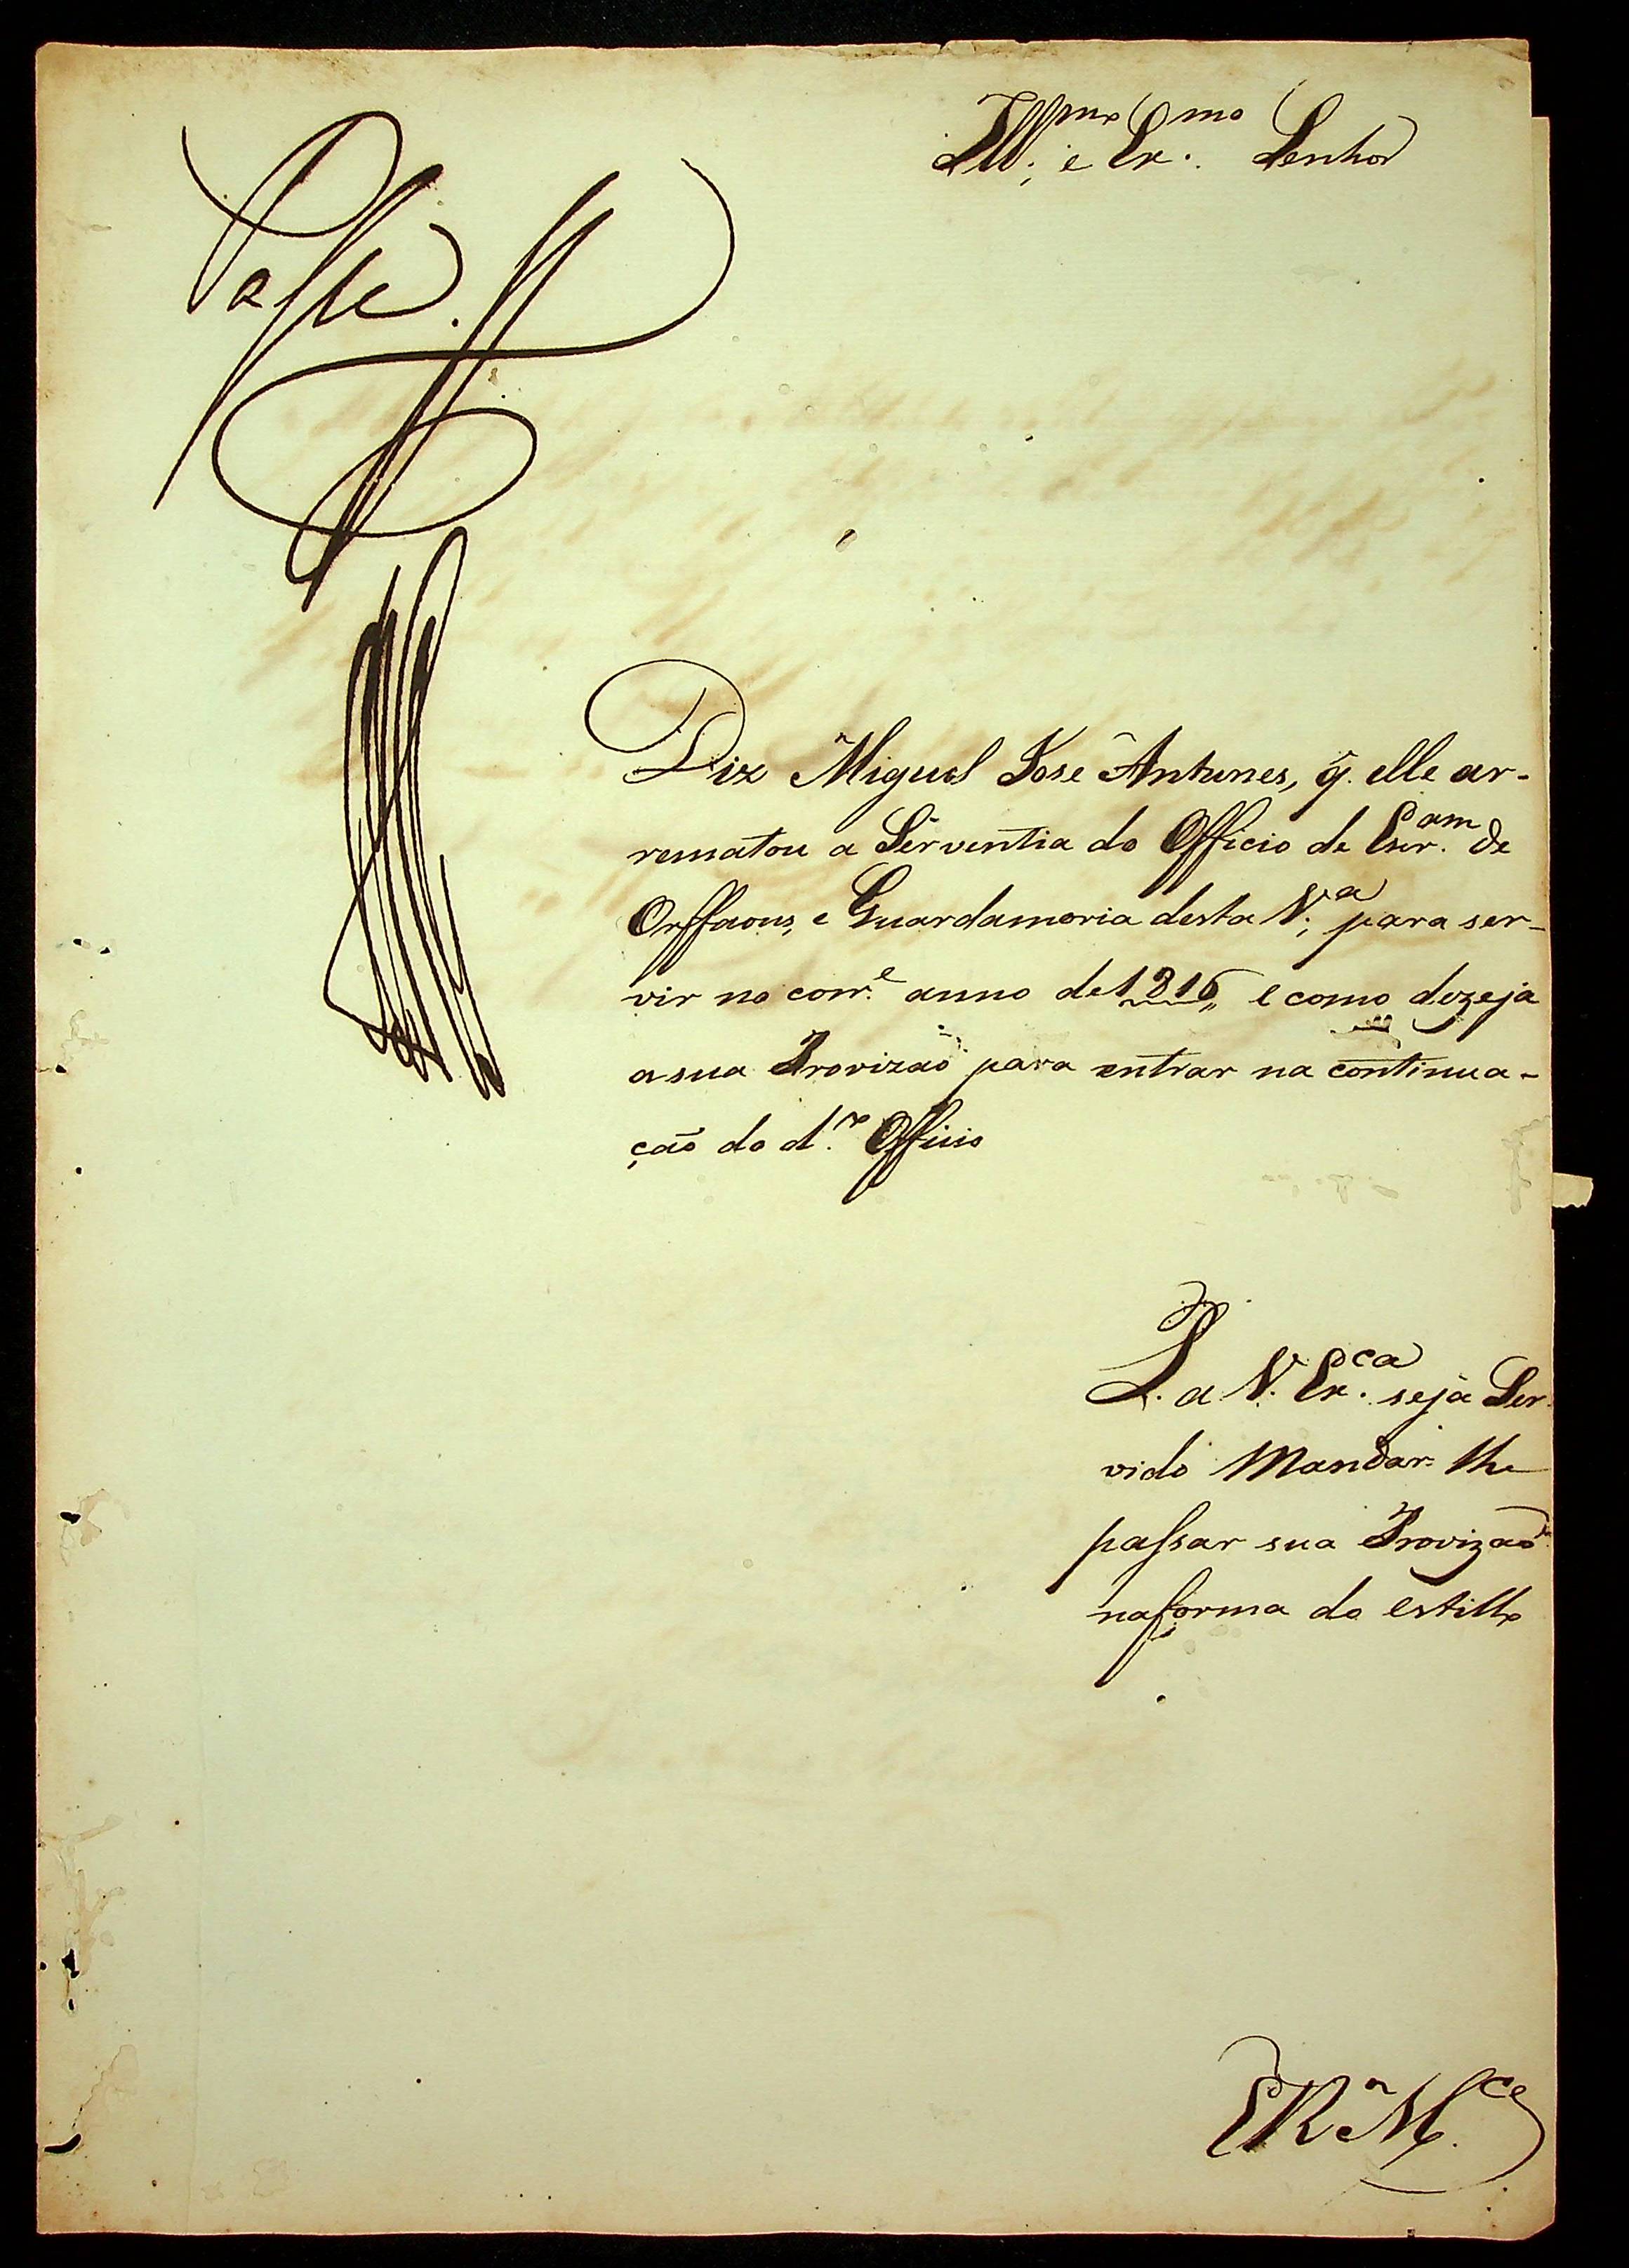 Ill.mo e Ex.mo Senhor
Passe.
Diz Miguel Jose Antunes, q̃. elle ar-
rematou a Serventia do Officio de Escr.am de
Orffaons, e Guardamoria desta V.a para ser-
vir no corr.e anno de 1816, e como dezeja
a sua Provizaõ para entrar na continua-
çaõ do d.o Officio
P. a V. Ex.ca seja Ser-
vido Mandar-lhe
passar sua Provizaõ
na forma do estillo
E R M.ce